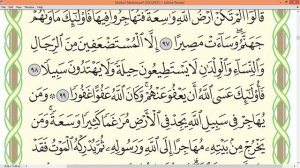 Mushaf Madina.pdf (SECURED) - Adobe Reader
قَالُوٓا۟ أَلَمْ تَكُنْ أَرْضُ ٱللَّهِ وَٰسِعَةً فَتُهَاجِرُوا۟ فِيهَا فَأُو۟لَٰٓئِكَ مَأْوَىٰهُمْ
جَهَنَّمُ وَسَآءَتْ مَصِيرًا ٩٧ إِلَّا ٱلْمُسْتَضْعَفِينَ مِنَ ٱلرِّجَالِ
وَٱلنِّسَآءِ وَٱلْوِلْدَٰنِ لَا يَسْتَطِيعُونَ حِيلَةً وَلَا يَهْتَدُونَ سَبِيلًا ٩٨
فَأُو۟لَٰٓئِكَ عَسَى ٱللَّهُ أَن يَعْفُوَ عَنْهُمْ وَكَانَ ٱللَّهُ عَفُوًّا غَفُورًا ٩٩ وَمَن
يُهَاجِرْ فِى سَبِيلِ ٱللَّهِ يَجِدْ فِى ٱلْأَرْضِ مُرَٰغَمًا كَثِيرًا وَسَعَةً وَمَن
يَخْرُجْ مِنۢ بَيْتِهِۦ مُهَاجِرًا إِلَى ٱللَّهِ وَرَسُولِهِۦ ثُمَّ يُدْرِكْهُ ٱلْمَوْتُ فَقَدْ